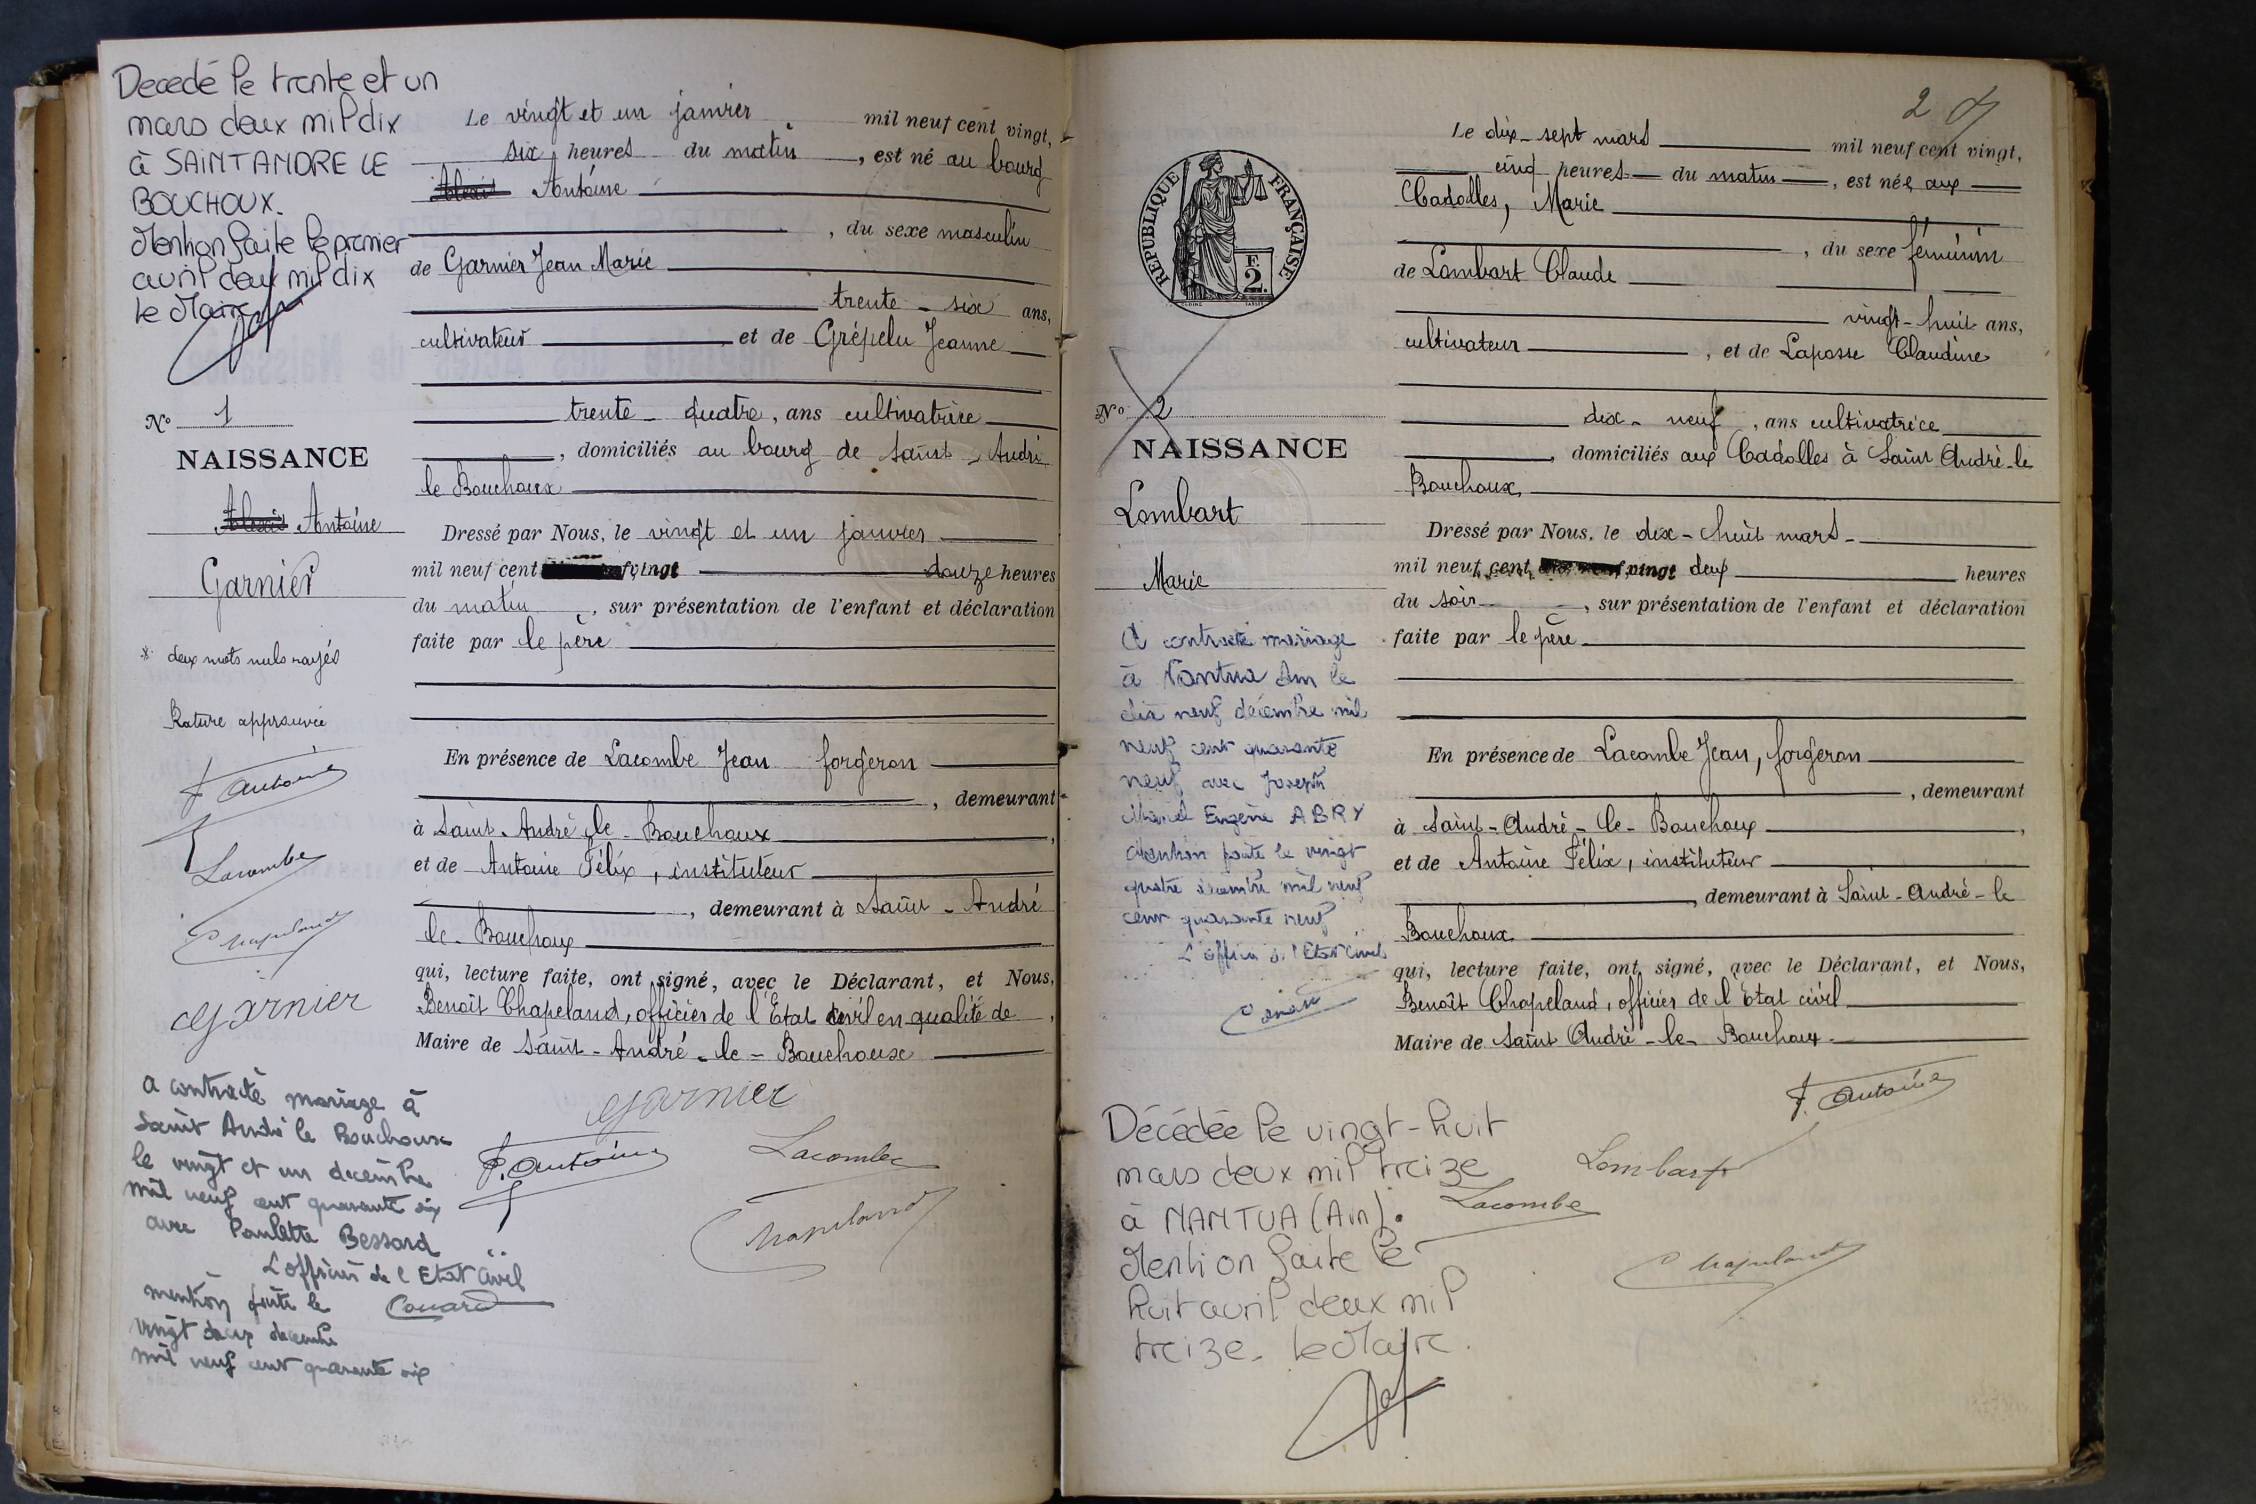 Decedé le trente et un
mars deux mil dix
à SAINT ANDRE LE
BOUCHOUX.
Mention faite le premier
avril deux mil dix
le Maire
N° 1
NAISSANCE
Alexis Antoine
Garnier
* deux mots nuls rayés
Rature approuvée
F. Antoine
Lacombe
Chapeland
Garnier
a contracté mariage à
Saint André le Bouchoux
le vingt et un decembre
mil neuf cent quarante six
avec Paulette Bessard
L'officier de l'Etat Civil
mention faite le
vingt deux decembre
mil neuf cent quarante six
Le vingt et un janvier mil neuf cent vingt,
six heures du matin, est né au bourg
Alexis Antoine
, du sexe masculin
de Garnier Jean Marie
trente-six ans,
cultivateur et de Grépelu Jeanne
trente-quatre, ans cultivatrice
, domiciliés au bourg de Saint-André
le Bouchoux
Dressé par Nous, le vingt et un janvier
mil neuf cent vingt douze heures
du matin, sur présentation de l'enfant et déclaration
faite par le père
En présence de Lacombe Jean forgeron
, demeurant
à Saint-André-le-Bouchoux,
et de Antoine Félix, instituteur
, demeurant à Saint-André
le-Bouchoux
qui, lecture faite, ont signé, avec le Déclarant, et Nous,
Benoît Chapeland, officier de l'Etat civil en qualité de,
Maire de Saint-André-le-Bouchoux
Garnier
F. Antoine
Lacombe
Chapeland
2
RÉPUBLIQUE FRANÇAISE
F.
2.
N° 2
NAISSANCE
Lombart
Marie
A contracté mariage
à Nantua Ain le
dix neuf décembre mil
neuf cent quarante
neuf avec Joseph
Marcel Eugène ABRY
Mention faite le vingt
quatre décembre mil neuf
cent quarante neuf
L'officier de l'Etat Civil
Le dix-sept mars mil neuf cent vingt,
cinq heures du matin, est née aux
Cadolles, Marie
, du sexe féminin
de Lombart Claude
vingt-huit ans,
cultivateur, et de Laposse Claudine
dix-neuf, ans cultivatrice
, domiciliés aux Cadolles à Saint André-le
Bouchoux
Dressé par Nous, le dix-huit mars
mil neuf cent vingt deux heures
du soir, sur présentation de l'enfant et déclaration
faite par le père
En présence de Lacombe Jean, forgeron
, demeurant
à Saint-André-le-Bouchoux,
et de Antoine Félix, instituteur
, demeurant à Saint-André-le
Bouchoux
qui, lecture faite, ont signé, avec le Déclarant, et Nous,
Benoît Chapeland, officier de l'Etat civil
Maire de Saint André-le-Bouchoux
F. Antoine
Lombart
Lacombe
Chapeland
Décédée le vingt-huit
mars deux mil treize
à NANTUA (Ain).
Mention faite le
huit avril deux mil
treize. le Maire.